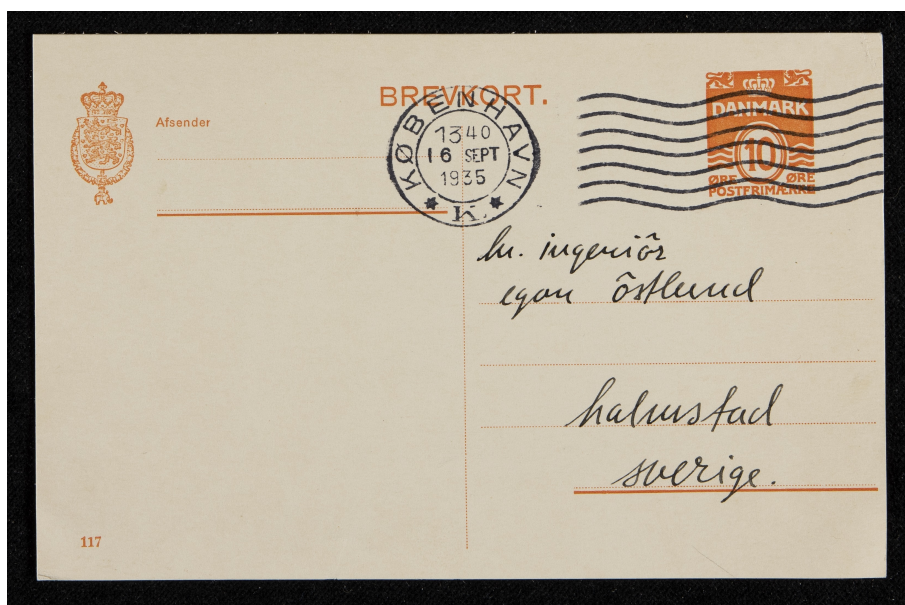 BREVKORT.
Afsender
KØBENHAVN
1340
16 SEPT
1935
K.
DANMARK
10
ØRE ØRE
POSTFRIMÆRKE
hr. ingeniör
egon östlund
halmstad
sverige.
117